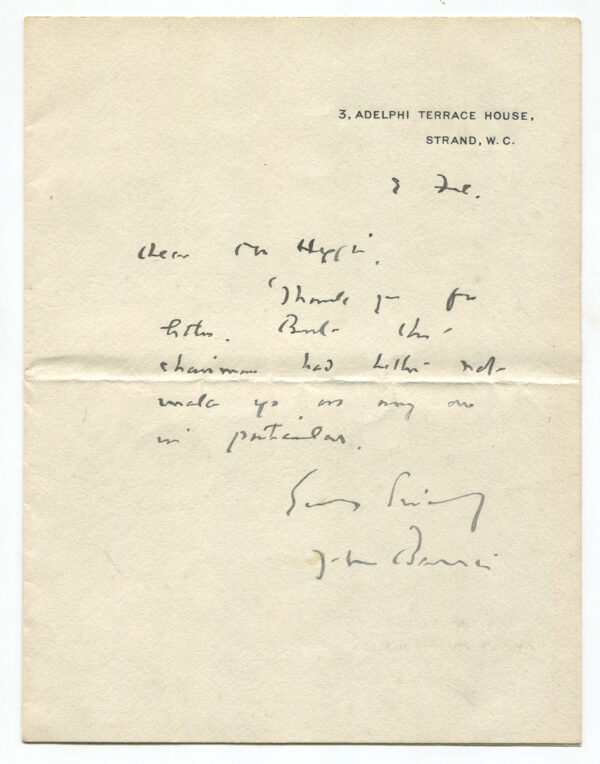 3, ADELPHI TERRACE HOUSE,
STRAND, W.C.
Dear Mr
Thank you for
letter. But the
chairman had better not
make up as any one
in particular.
Yours Sincerely